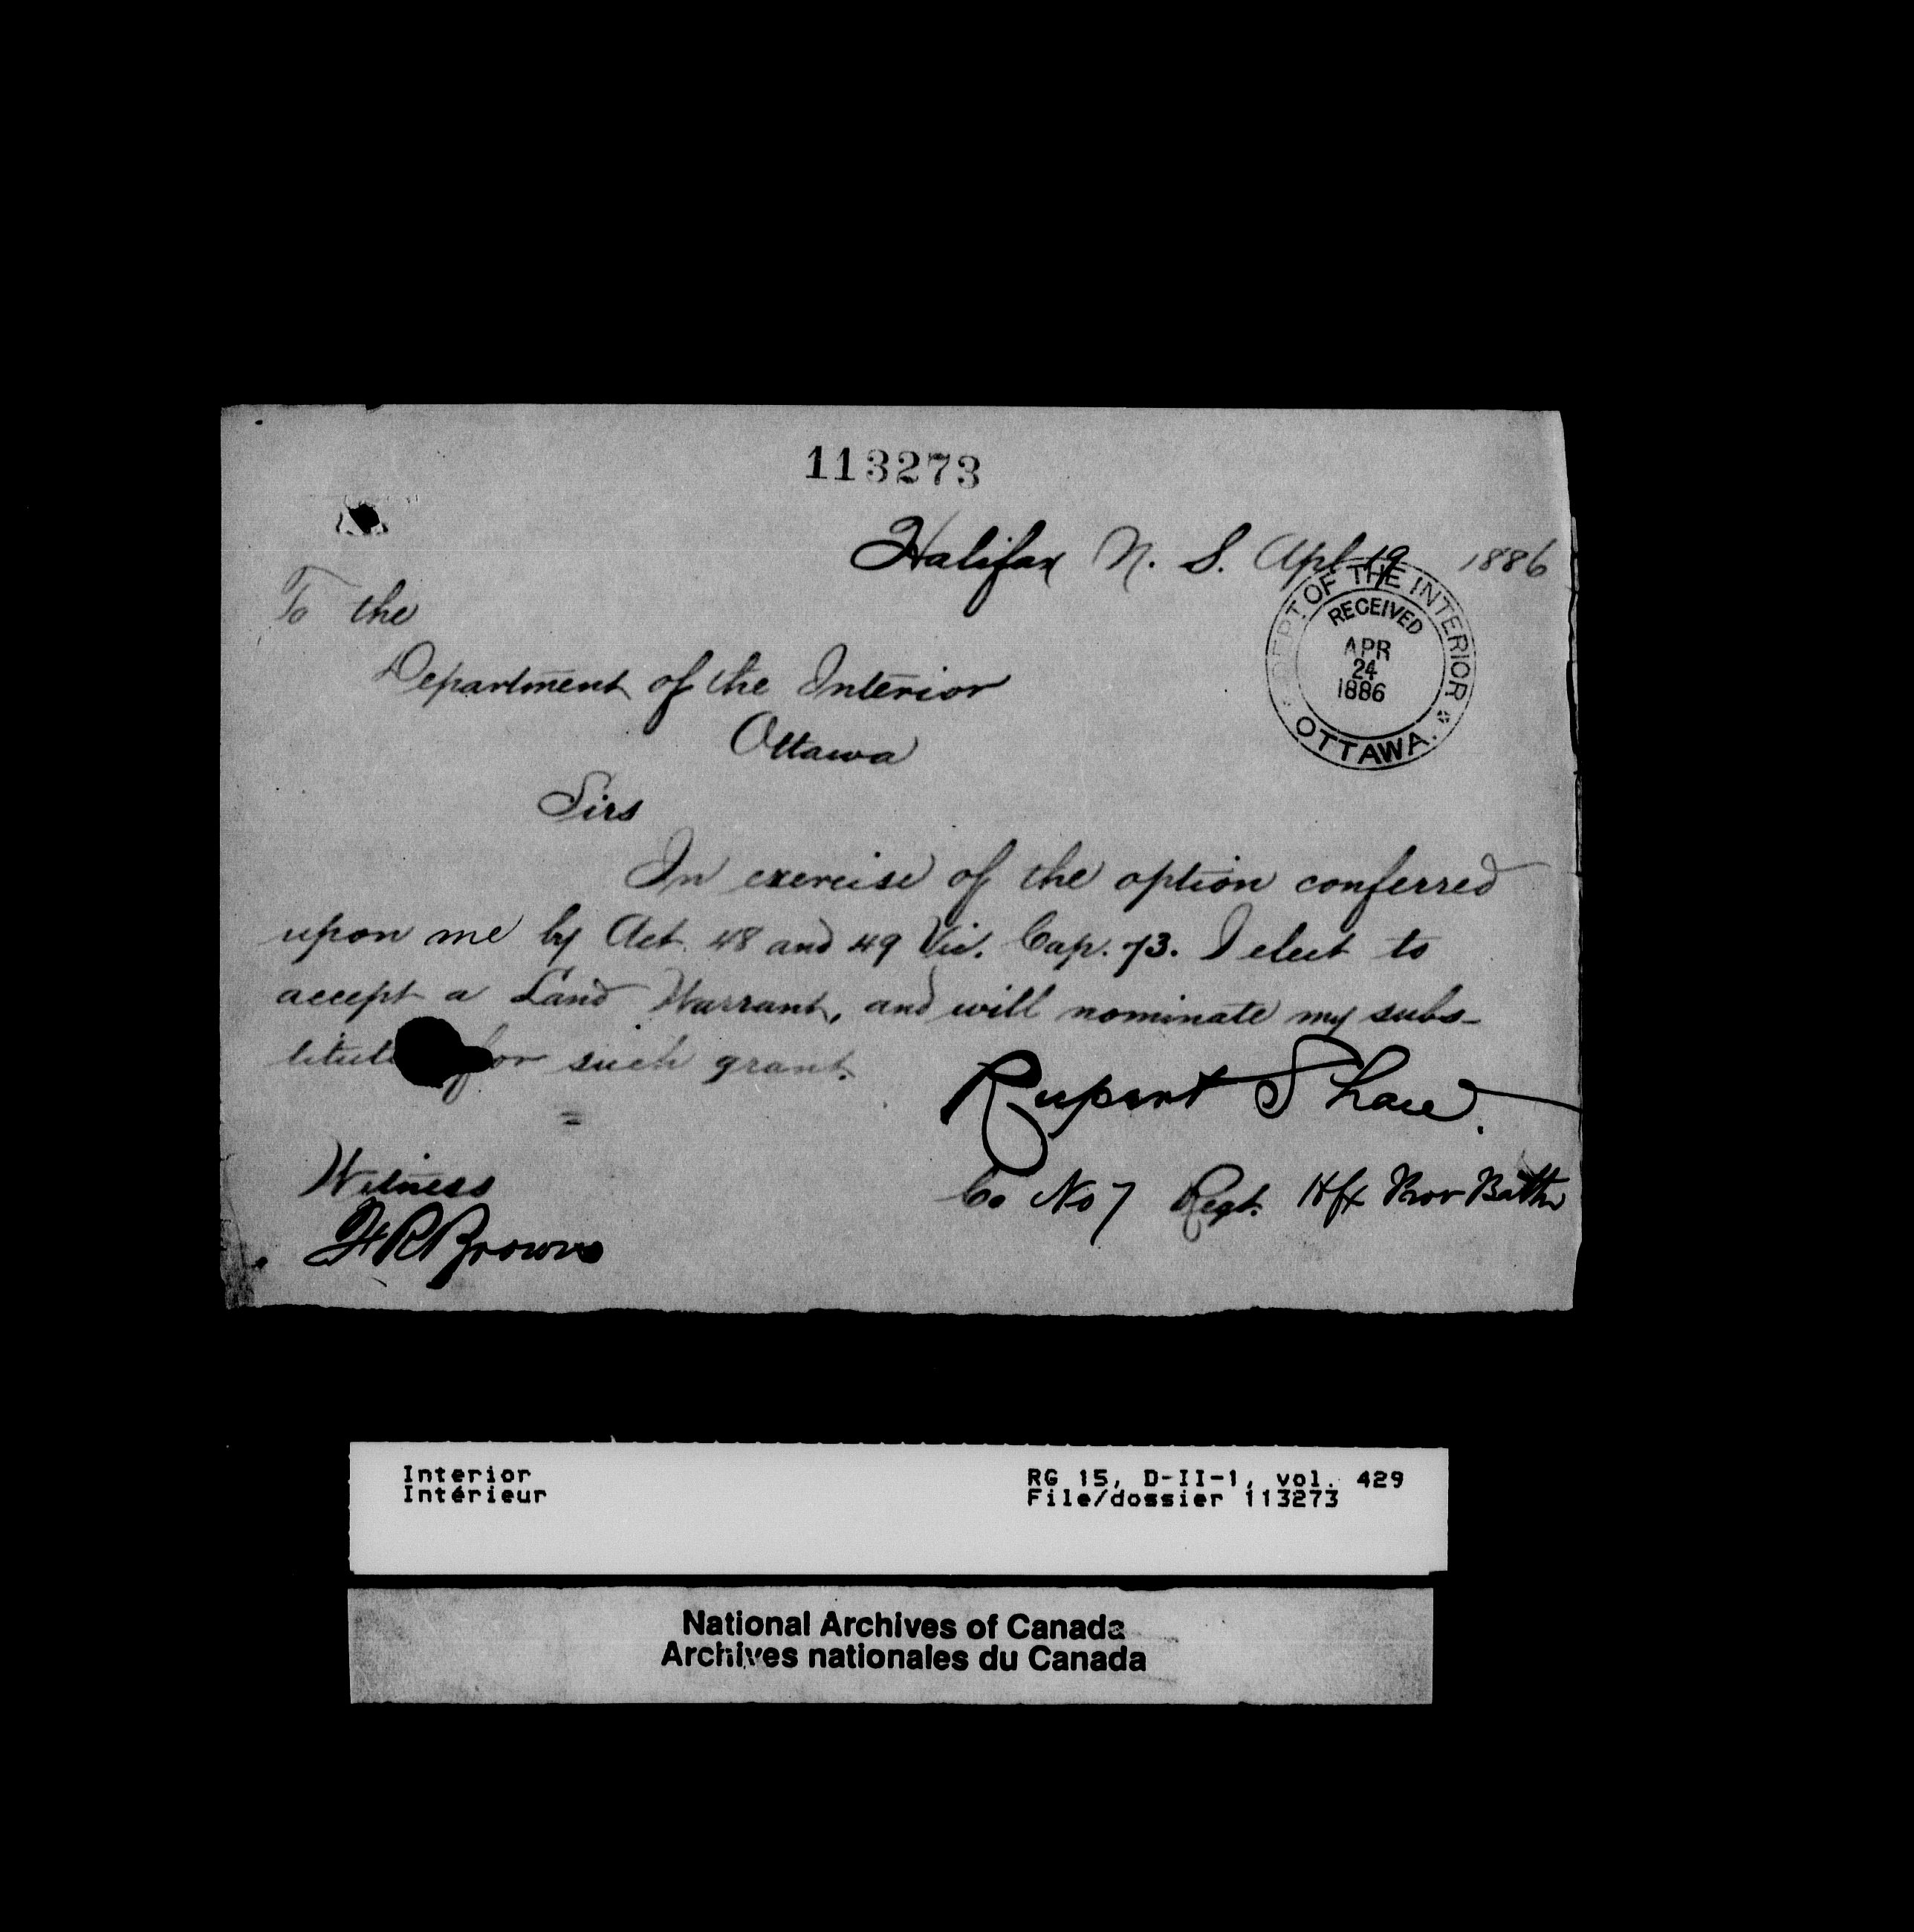 113273
Halifax N. S. Apl 19 1886
To the
Department of the Interior
Ottawa
DEPT OF THE INTERIOR
RECEIVED
APR
24
1886
OTTAWA.
Sirs
In exercise of the option conferred
upon me by Act. 48 and 49 Vic. Cap. 73. I elect to
accept a Land Warrant, and will nominate my subs-
titute for such grant.
Rupert Shaw.
Co No 7 Regt. Hfx Prov Battn
Witness
Brown
Interior
Intérieur
RG 15, D-II-1, vol. 429
File/dossier 113273
National Archives of Canada
Archives nationales du Canada